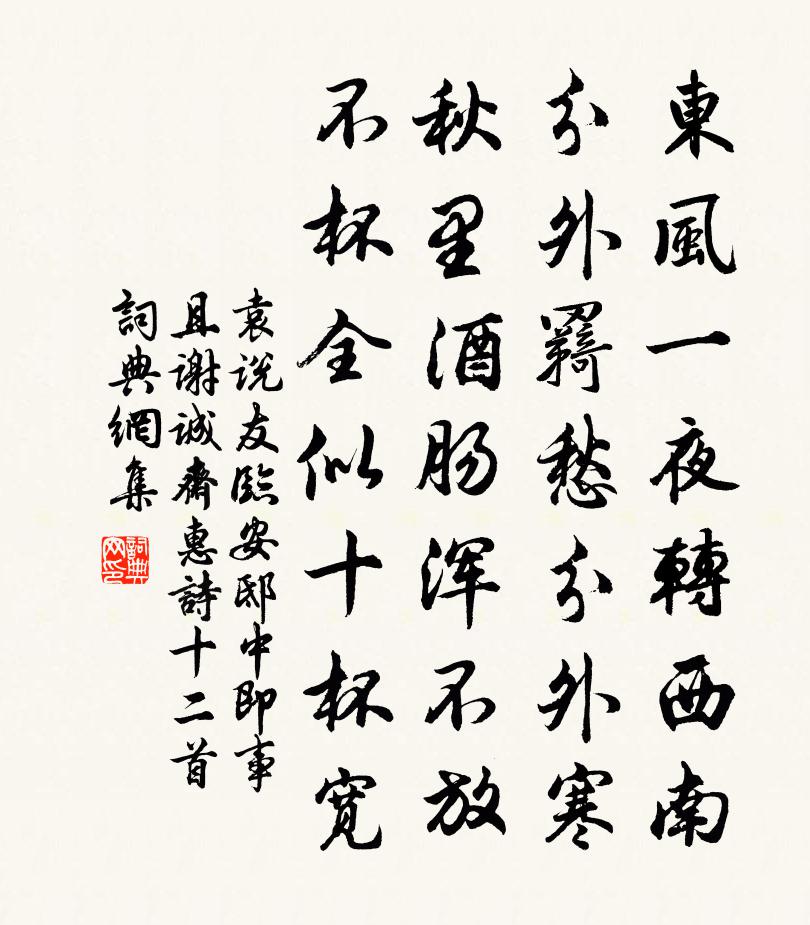 東風一夜轉西南
分外羇愁分外寒
秋里酒肠浑不放
不杯全似十杯寬
袁说友臨安邸中即事
且谢诚齋惠詩十二首
詞典網集
詞典网印